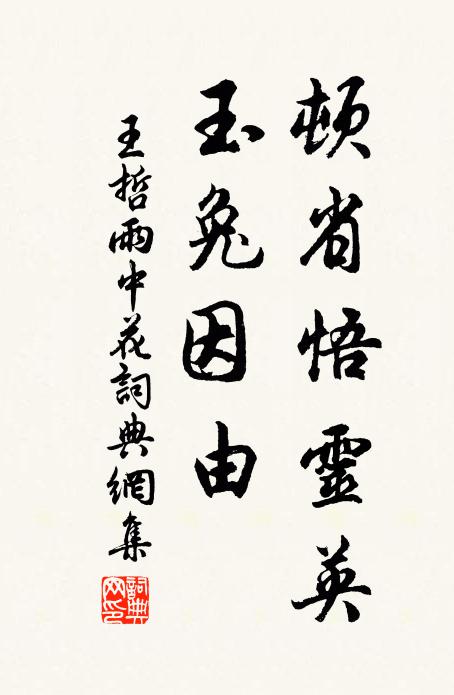 頓省悟靈英
玉兔因由
王哲雨中花詞典網集
詞典網印